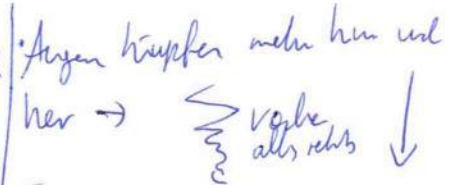 · Augen hüpfen mehr hin und
her →
alles rechts ↓